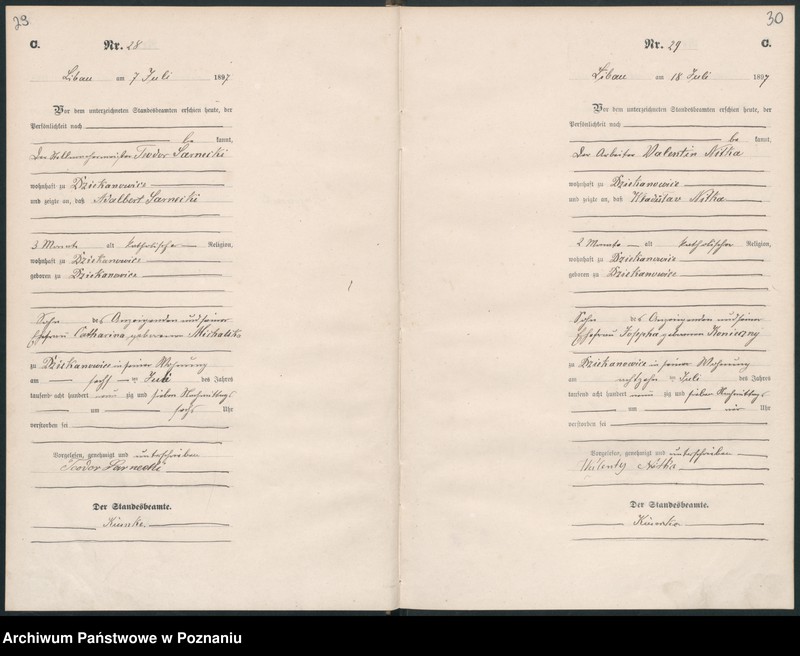 29
C. Nr. 28
Libau am 7 Juli 1897
Vor dem unterzeichneten Standesbeamten erschien heute, der
Persönlichkeit nach
be kannt,
Der Teodor Sarnecki
wohnhaft zu Dziekanowice
und zeigte an, daß Adalbert Sarnecki
3 Monate alt katholischer Religion,
wohnhaft zu Dziekanowice
geboren zu Dziekanowice
Sohn des Anzeigenden und seiner
Ehefrau Catharina, geborenen Michalska
zu Dziekanowice in seiner Wohnung
am Juli des Jahres
tausend acht hundert neun zig und sieben Nachmittags
um sechs Uhr
verstorben sei
Vorgelesen, genehmigt und unterschrieben
Teodor Sarnecki
Der Standesbeamte.
30
Nr. 29 C.
Libau am 18 Juli 1897
Vor dem unterzeichneten Standesbeamten erschien heute, der
Persönlichkeit nach
be kannt,
Der Arbeiter Valentin Notka
wohnhaft zu Dziekanowice
und zeigte an, daß Wladislav Notka
2 Monate alt katholischer Religion,
wohnhaft zu Dziekanowice
geboren zu Dziekanowice
Sohn des Anzeigenden und seiner
Ehefrau Josepha, geborenen Konieczny
zu Dziekanowice in seiner Wohnung
am achtzehn ten Juli des Jahres
tausend acht hundert neun zig und sieben Nachmittags
um vier Uhr
verstorben sei
Vorgelesen, genehmigt und unterschrieben
Walenty Notka
Der Standesbeamte.
Archiwum Państwowe w Poznaniu